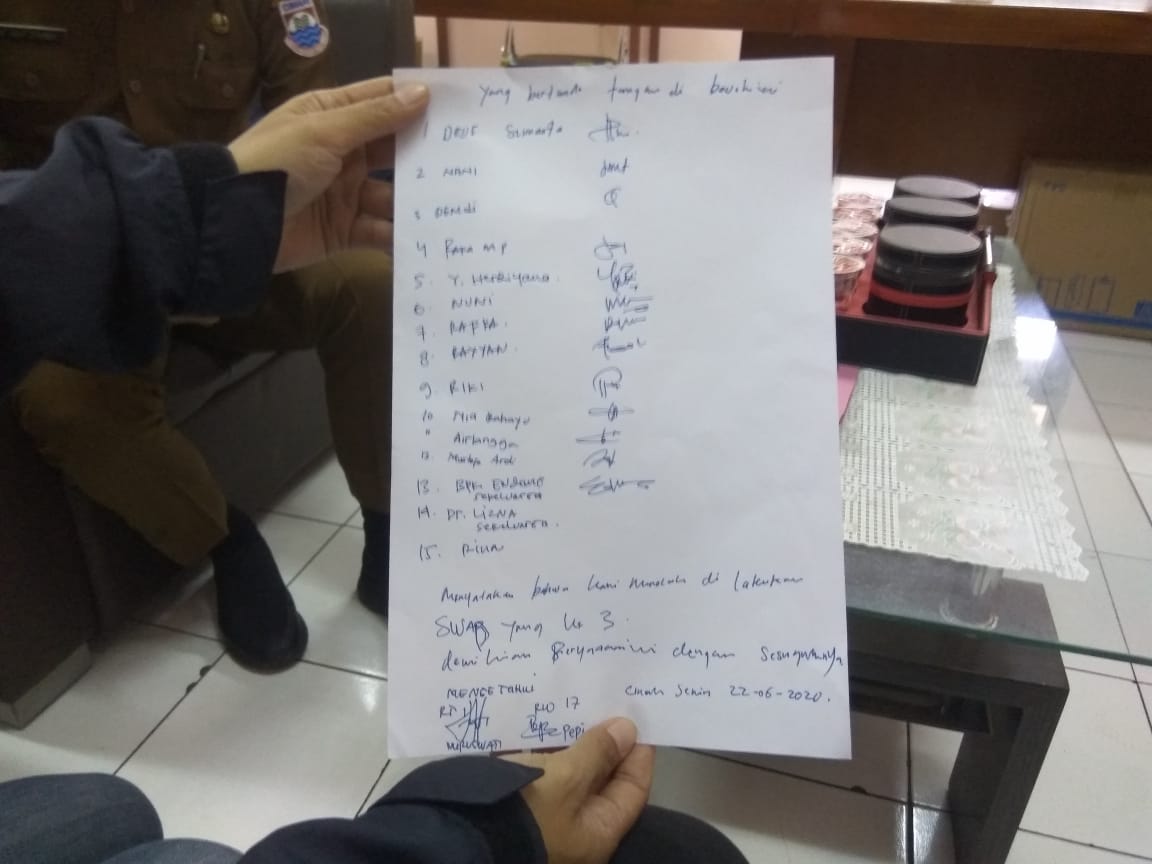 yang bertanda tangan di bawah ini
1 DEDE Sumarta
2 NANI
3 DENDI
4 RAKA MP
5. Y. Herdiyana.
6. NUNI
7. RAFKA.
8. RAYYAN.
9. RIKI
10 Mia Rahayu
11 Airlangga
12
13. BPK. ENDANG
SEKELUARGA
14. SEKELUARGA.
15. RINA
Menyatakan bahwa kami menolak di lakukan
SWAB yang ke 3.
demikian pernyataan ini dengan sesungguhnya
MENGETAHUI
RT
RW 17
Cimahi Senin 22-06-2020.
Pepi